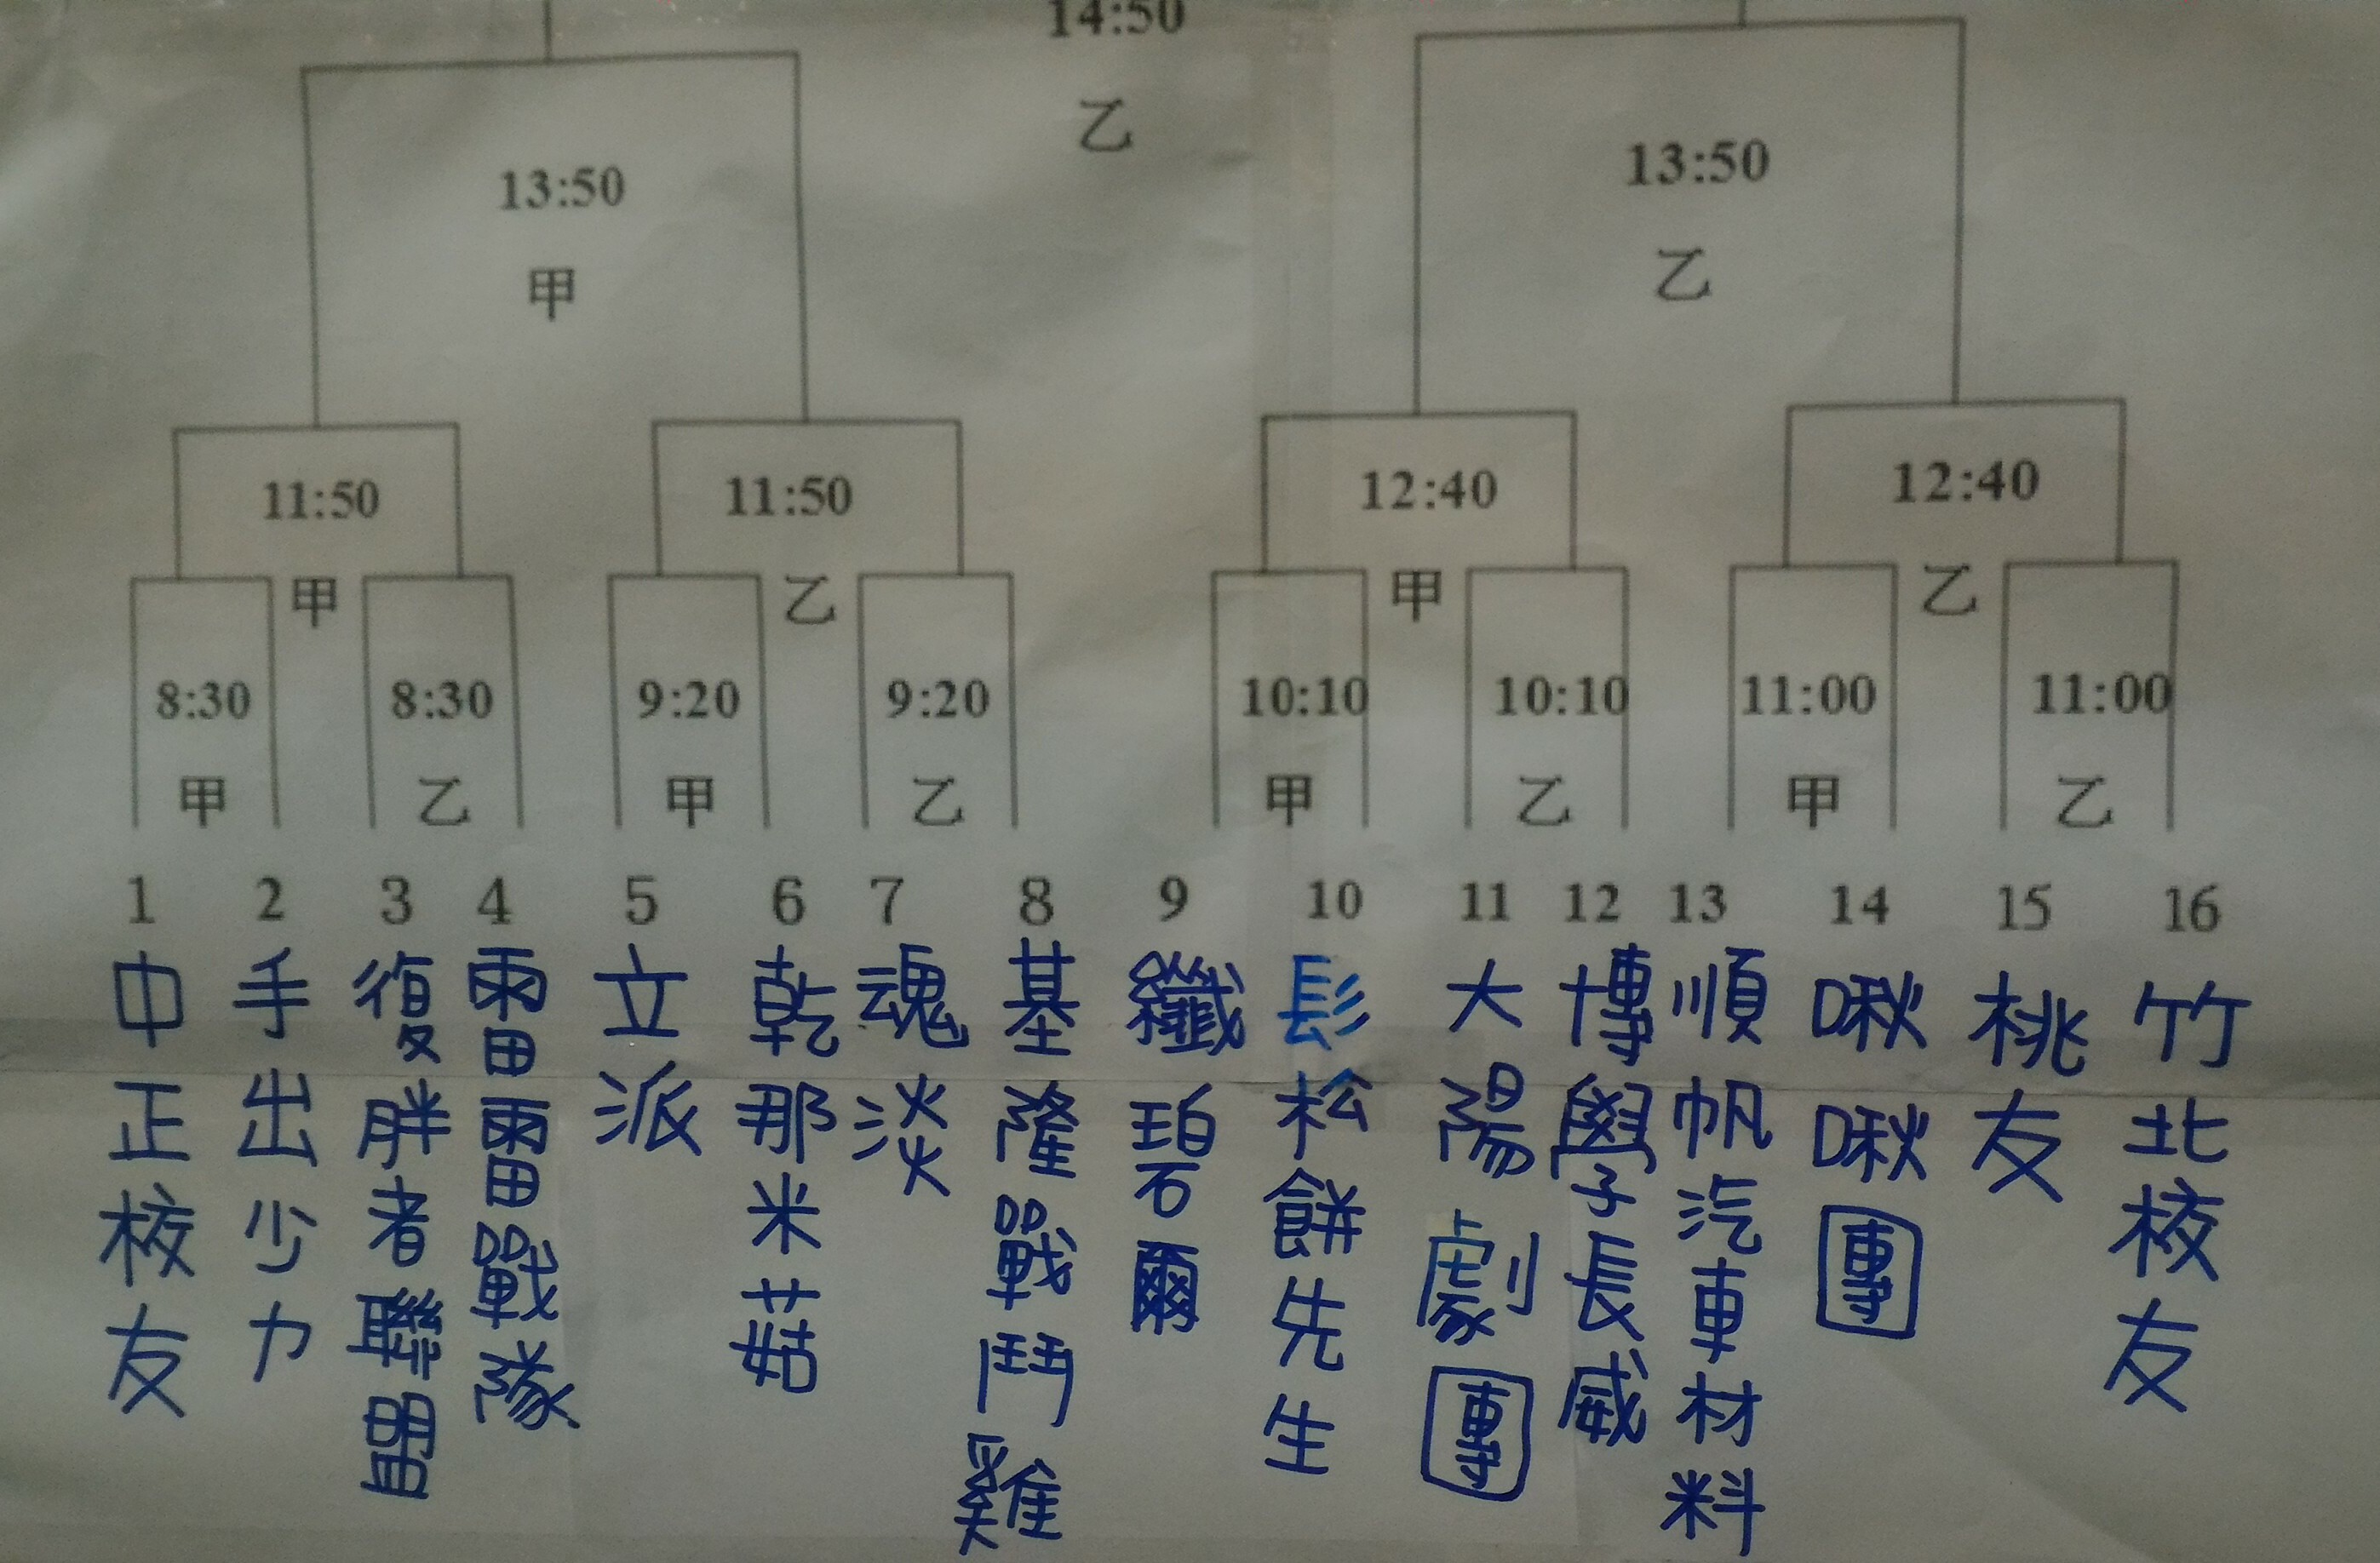 14:50
乙
13:50
甲
13:50
乙
11:50
甲
11:50
乙
12:40
甲
12:40
乙
8:30
甲
8:30
乙
9:20
甲
9:20
乙
10:10
甲
10:10
乙
11:00
甲
11:00
乙
1 2 3 4 5 6 7 8 9 10 11 12 13 14 15 16
中正校友
手出少力
復胖者聯盟
雷雷戰隊
立派
乾那米菇
魂淡
基隆戰鬥雞
纖碧爾
鬆餅先生
大陽劇團
博學長威
順帆汽車材料
啾啾團
桃友
竹北校友